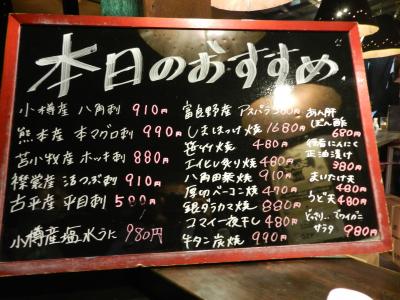 本日のおすすめ
小樽産 八角刺 910円
熊本産 本マグロ刺 990円
苫小牧産 ホッキ刺 880円
襟裳産 活つぶ刺 910円
古平産 平目刺 580円
小樽産塩水うに 980円
富良野産 アスパラ 500円
しまほっけ焼 1680円
笹竹焼 480円
エイヒレ炙り焼 480円
八角田楽焼 910円
厚切ベーコン焼 470円
銀ダラカマ焼 880円
コマイ一夜干し 480円
牛タン炭焼 990円
あん肝
ぽん酢
680円
にんにく
正油漬け
380円
まいたけ天
480円
うど天 480円
どっさり ズワイガニ
サラダ 980円